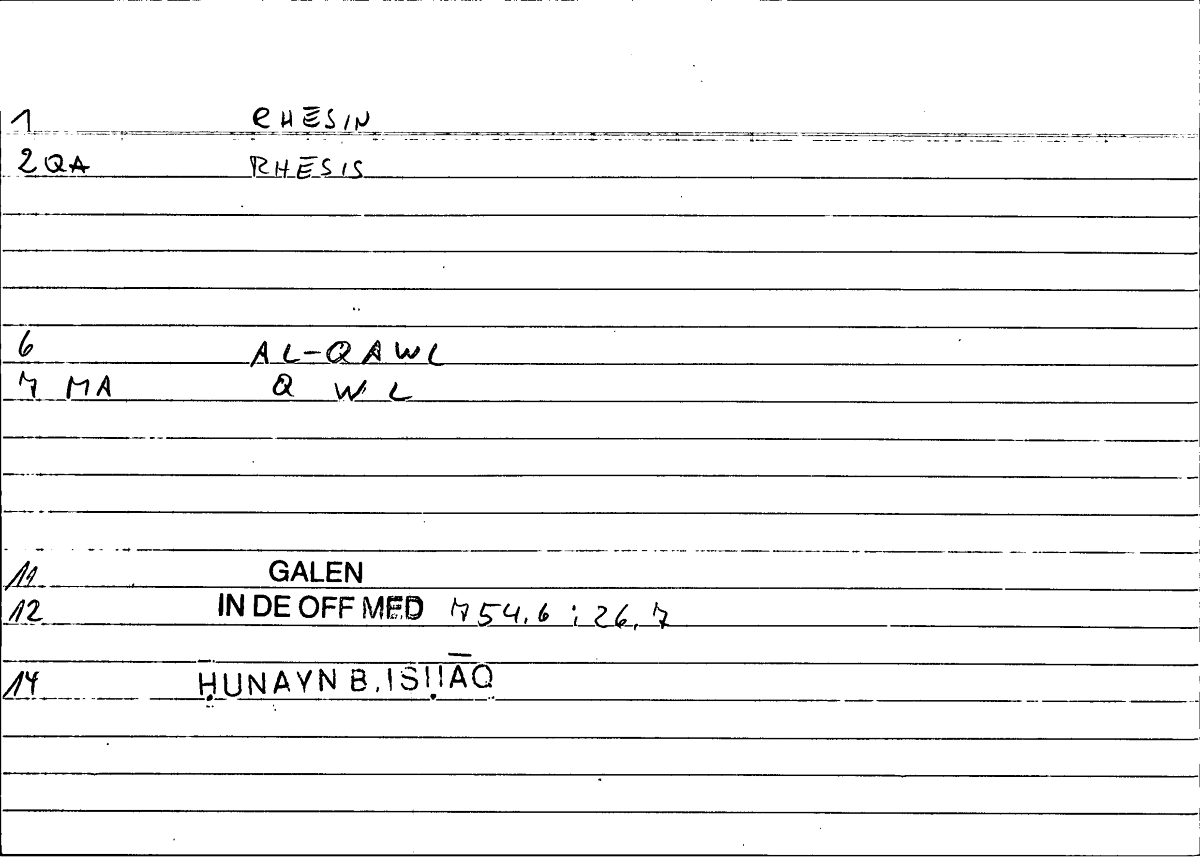 1 RHĒSIN
2 QA RHĒSIS
6 AL-QAWL
7 MA Q W L
11 GALEN
12 IN DE OFF MED 754.6 ; 26.7
14 ḤUNAYN B. ISḤĀQ